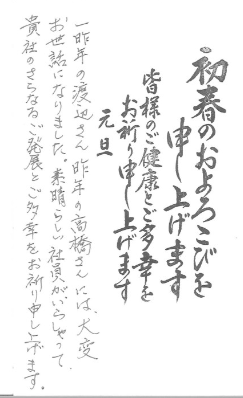 初春のおよろこびを
申し上げます
皆様のご健康とご多幸を
お祈り申し上げます
元旦
一昨年の渡辺さん、昨年の高橋さんには、大変
お世話になりました。素晴らしい社員がいらしゃって、
貴社のさらなるご発展とご多幸をお祈り申し上げます。